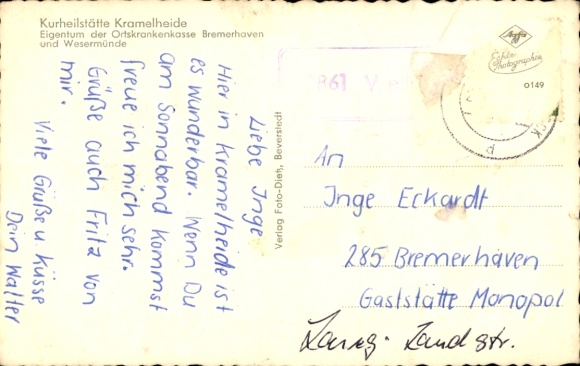 Kurheilstätte Kramelheide
Eigentum der Ortskrankenkasse Bremerhaven
und Wesermünde
Liebe Inge
Hier in Kramelheide ist
es wunderbar. Wenn Du
am Sonnabend kommst
freue ich mich sehr.
Grüße auch Fritz von
mir.
Viele Grüße u. Küsse
Dein Walter
Verlag Foto-Dietz, Beverstedt
Agfa
Echte
Photographie
0149
861
An
Inge Eckardt
285 Bremerhaven
Gaststätte Monopol
Landstr.